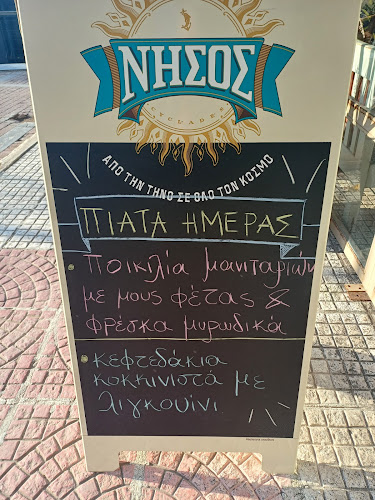 ΝΗΣΟΣ
CYCLADES
ΑΠΟ ΤΗΝ ΤΗΝΟ ΣΕ ΟΛΟ ΤΟΝ ΚΟΣΜΟ
ΠΙΑΤΑ ΗΜΕΡΑΣ
Ποικιλία μανιταριών
με μους φέτας &
φρέσκα μυρωδικά
κεφτεδάκια
κοκκινιστά με
λιγκουίνι